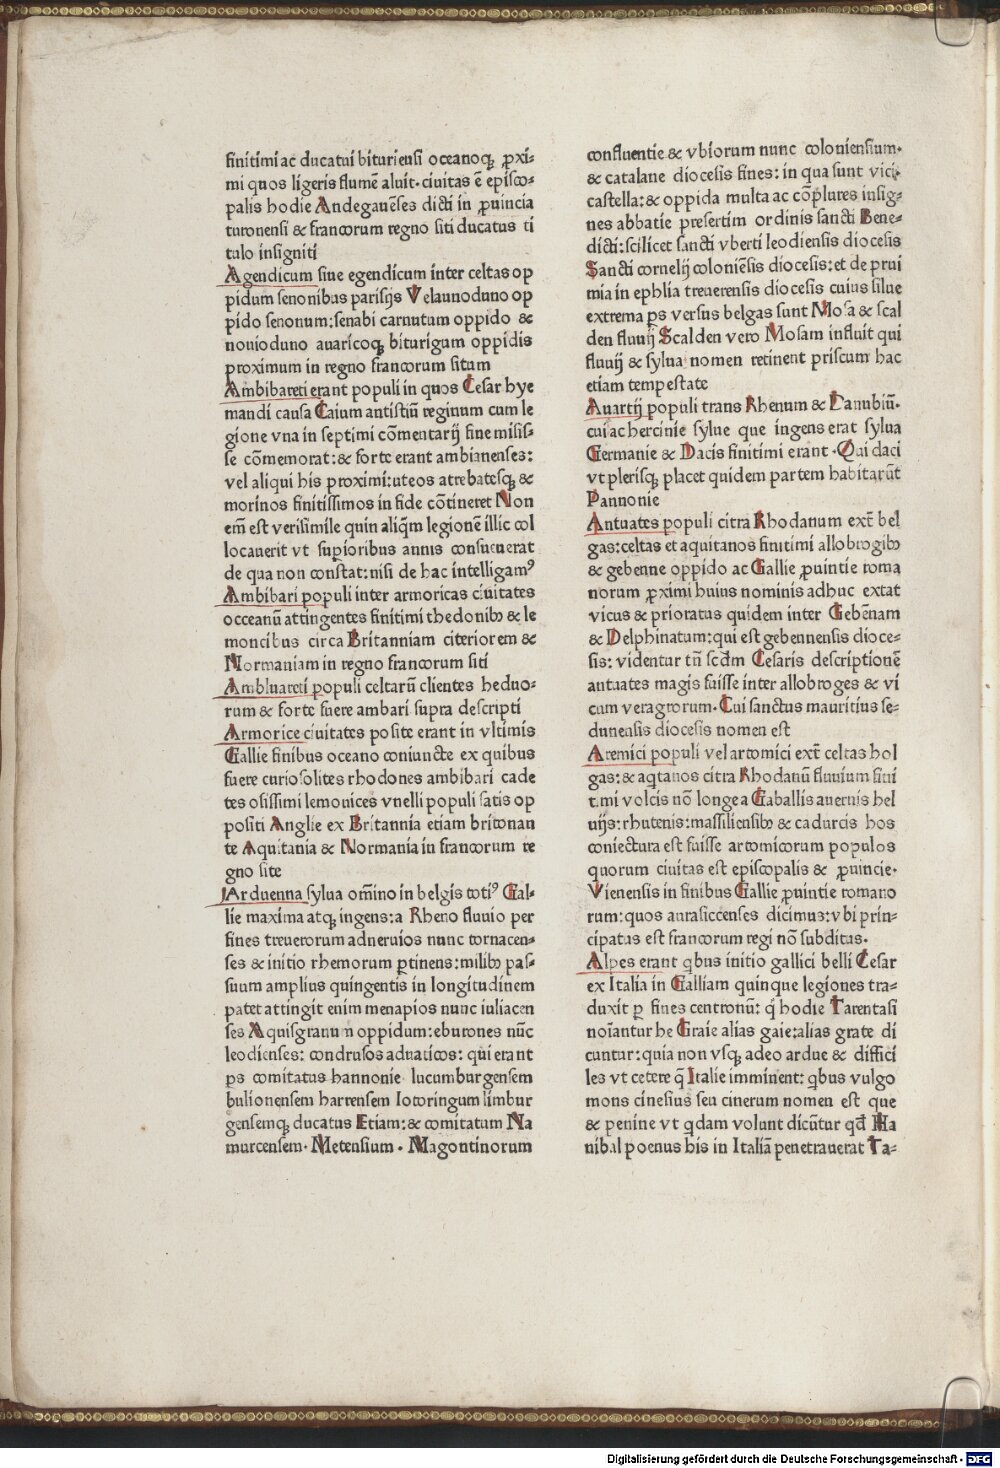 finitimi ac ducatui bituriensi oceanoqꝫ ꝓxi⸗
mi quos ligeris flumē aluit·ciuitas ē episco⸗
palis hodie Andegauēses dicti in ꝓuincia
turonensi & francorum regno siti ducatus ti
tulo insigniti
Agendicum siue egendicum inter celtas op
pidum senonibus parisijs Velaunoduno op
pido senonum:senabi carnutum oppido &
nouioduno auaricoqꝫ biturigum oppidis
proximum in regno francorum situm
Ambibareti erant populi in quos Cesar hye
mandi causa Caium antistiū reginum cum le
gione vna in septimi cōmentarij fine misis⸗
se cōmemorat:& forte erant ambianenses:
vel aliqui his proximi:uteos atrebatesqꝫ &
morinos finitissimos in fide cōtineret Non
em̄ est verisimile quin aliqm̄ legionē illic col
locauerit vt supioribus annis consueuerat
de qua non constat:nisi de hac intelligamꝰ
Ambibari populi inter armoricas ciuitates
occeanū attingentes finitimi thedonibꝫ & le
moncibus circa Britanniam citeriorem &
Normaniam in regno francorum siti
Ambluareti populi celtarū clientes heduo⸗
rum & forte fuere ambari supra descripti
Armorice ciuitates posite erant in vltimis
Gallie finibus oceano coniuncte ex quibus
fuere curiosolites rhodones ambibari cade
tes osissimi lemouices vnelli populi satis op
positi Anglie ex Britannia etiam britonan
te Aquitania & Normania in francorum re
gno site
Arduenna sylua om̄ino in belgis totiꝰ Gal⸗
lie maxima atqꝫ ingens:a Rheno fluuio per
fines treuerorum adneruios nunc tornacen⸗
ses & initio rhemorum ꝑtinens:milibꝫ pas⸗
suum amplius quingentis in longitudinem
patet attingit enim menapios nunc iuliacen
ses Aquisgranum oppidum:eburones nūc
leodienses: condrusos aduaticos: qui erant
ꝑs comitatus hannonie lucumburgensem
bulionensem harrensem Lotoringum limbur
gensemqꝫ ducatus Etiam:& comitatum Na
murcensem· Metensium · Magontinorum
confluentie & vbiorum nunc coloniensium·
& catalane diocesis fines: in qua sunt vici
castella:& oppida multa ac cōplures insig⸗
nes abbatie presertim ordinis sancti Bene⸗
dicti:scilicet sancti vberti leodiensis diocesis
Sancti cornelij coloniēsis diocesis:et de prui
mia in ephlia treuerensis diocesis cuius silue
extrema ꝑs versus belgas sunt Mosa & scal
den fluuij Scalden vero Mosam influit qui
fluuij & sylua nomen retinent priscum hac
etiam tempestate
Auartij populi trans Rhenum & Danubiū·
cui ac hercinie sylue que ingens erat sylua
Germanie & Dacis finitimi erant ·Qui daci
vt plerisqꝫ placet quidem partem habitarūt
Pannonie
Antuates populi citra Rhodanum ext̄ bel
gas:celtas et aquitanos finitimi allobrogibꝫ
& gebenne oppido ac Gallie ꝓuintie roma
norum ꝓximi huius nominis adhuc extat
vicus & prioratus quidem inter Gebēnam
& Delphinatum:qui est gebennensis dioce⸗
sis: videntur tn̄ scd̄m Cesaris descriptionē
antuates magis fuisse inter allobroges & vi
cum veragrorum· Cui sanctus mauritius se⸗
dunensis diocesis nomen est
Aremici populi vel aromici ext̄ celtas bel
gas:& aqtanos citra Rhodanū fluuium fini
timi volcis nō longe a Gaballis auernis hel
uijs:rhutenis:massiliensibꝫ & cadurcis hos
coniectura est fuisse aromicorum populos
quorum ciuitas est episcopalis & ꝓuincie·
Vienensis in finibus Gallie ꝓuintie romano
rum:quos aurasiccenses dicimus:vbi prin⸗
cipatus est francorum regi nō subditus·
Alpes erant qbus initio gallici belli Cesar
ex Italia in Galliam quinque legiones tra⸗
duxit ꝑ fines centronū: q̄ hodie Tarentasi
noīantur he Graie alias gaie:alias grate di
cuntur:quia non vsqꝫ adeo ardue & diffici
les vt cetere q̄ Italie imminent: qbus vulgo
mons cinesius seu cinerum nomen est que
& penine vt qdam volunt dicūtur qd̄ Ha
nibal poenus his in Italiā penetrauerat Ta⸗
Digitalisierung gefördert durch die Deutsche Forschungsgemeinschaft - DFG